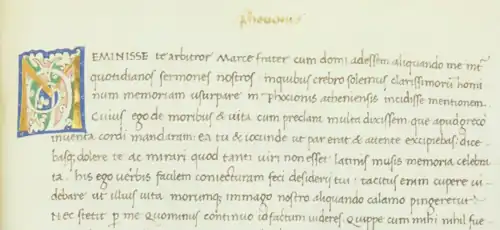 phocionis
MEMINISSE te arbitror Marce frater cum domi adessem aliquando me int
quotidianos sermones nostros in quibus crebro solemus clarissimorū homi
num memoriam usurpare in phocionis atheniensis incidisse mentionem
Cuius ego de moribus & vita cum preclara multa dixissem que apud grecos
inventa cordi mandaram: ea tu & iocunde ut par erat & avente excipiebas: dice
basq; dolere te ac mirari quod tanti viri non esset latinis musis memoria celebra
ta his ego verbis facilem coniecturam feci desiderij tui: tacitus enim cupere vi
debare ut illius vita morumq; immago nostro aliquando calamo pingeretur
Nec stetit p me quominus continuo id factum videres. Quippe cum mihi nihil fue